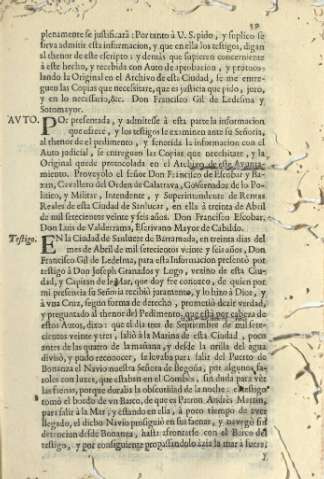 plenamente se justificará: Por tanto à U.S. pido, y suplico se
sirva admitir esta informacion, y que en ella los testigos, digan
al thenor de este escripto: y demàs que supieren concerniente
à este hecho, y recebida con Auto de aprobacion, y protoco-
lando la Original en el Archivo de esta Ciudad, se me entre-
guen las Copias que necesitare, que es justicia que pido, juro,
y en lo necessario, &c. Don Francisco Gil de Ledesma y
Sotomayor.
AVTO. POr presentada, y admitese à esta parte la informacion
que ofrece, y los testigos se examinen ante su Señoria,
al thenor de el pedimento, y fenecida la informacion con el
Auto judicial, se entreguen las Copias que necesitare, y la
Original quede protocolada en el Archivo de este Ayunta-
miento. Proveyòlo el señor Don Francisco de Escobar y Ba-
zan, Cavallero del Orden de Calatrava, Governador de lo Po-
litico, y Militar, Intendente, y Superintendente de Rentas
Reales de esta Ciudad de Sanlucar, en ella à treinta de Abril
de mil setecientos veinte y seis años. Don Francisco Escobar,
Don Luis de Valderrama, Escrivano Mayor de Cabildo.
Testigo. EN la Ciudad de Sanlucar de Barrameda, en treinta dias del
mes de Abril de mil setecientos veinte y seis años, Don
Francisco Gil de Ledesma, para esta Informacion presentò por
testigo à Don Joseph Granados y Lugo, vezino de esta Ciu-
dad, y Capitan de Mar, que doy fee conozco, de quien por
mi presencia su Señoria recibiò juramento, y lo hizo à Dios, y
à una Cruz, segun forma de derecho, prometiò dezir verdad,
y preguntado al thenor del Pedimento, que està por cabeza de
estos Autos, dixo: que el dia tres de Septiembre de mil sete-
cientos veinte y tres, saliò à la Marina de esta Ciudad, poco
antes de las quatro de la mañana, y desde la orilla del agua
divisò, y pudo reconocer, se levaba para salir del Puerto de
Bonanza el Navio nuestra Señora de Begoña, por algunos fa-
roles con luzes, que estaban en el Combès, sin duda para ver
las faenas, porque duraba la obscuridad de la noche: este testigo
tomò el bordo de un Barco, de que es Patron Andrès Martin,
para salir à la Mar, y estando en ella, à poco tiempo de aver
llegado, el dicho Navio prosiguiò en sus faenas, y navegò sin
detencion desde Bonanza, hasta afrontarse con el Barco del
testigo, y por consiguiente propassandolo àzia la mar à fuera,
y